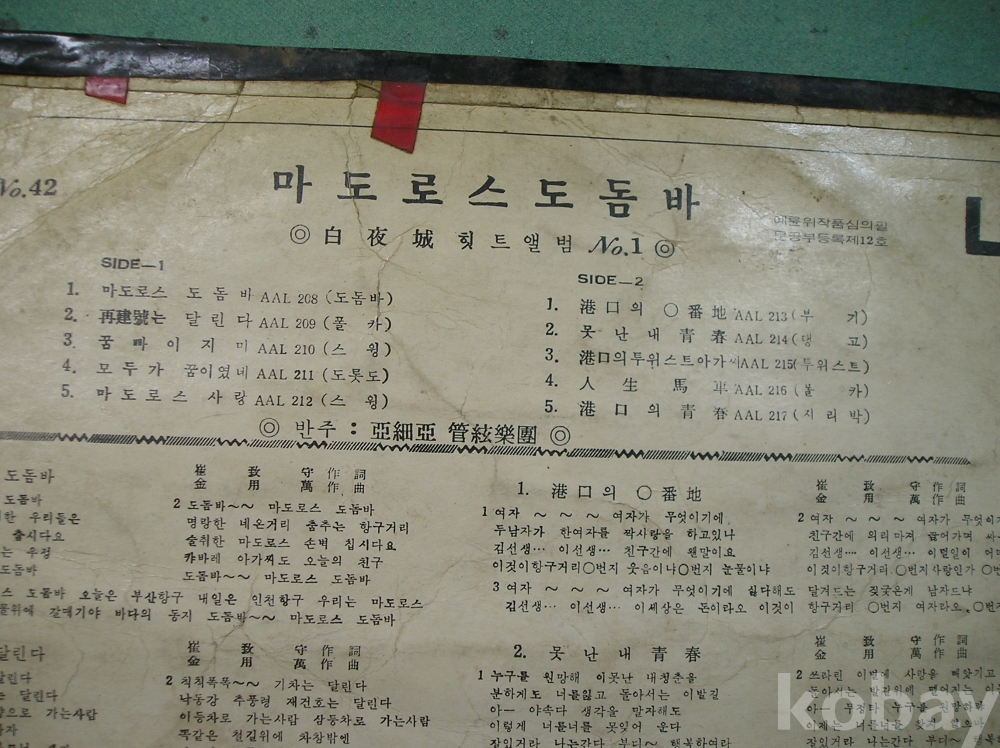 No.42
마도로스도돔바
예륜위작품심의필
문공부등록제12호
◎ 白夜城 힛트앨범 No.1 ◎
SIDE—1
1. 마도로스 도돔바 AAL 208 (도돔바)
2. 再建號는 달린다 AAL 209 (폴카)
3. 꿈빠이지미 AAL 210 (스윙)
4. 모두가 꿈이였네 AAL 211 (도롯도)
5. 마도로스 사랑 AAL 212 (스윙)
SIDE—2
1. 港口의 〇番地 AAL 213 (부기)
2. 못난내靑春 AAL 214 (탱고)
3. 港口의투위스트아가씨 AAL 215 (투위스트)
4. 人生馬車 AAL 216 (폴카)
5. 港口의靑春 AAL 217 (시리박)
◎ 반주 : 亞細亞 管絃樂團 ◎
도돔바
崔致守作詞
金用萬作曲
도돔바
한 우리들은
출시다요
는 우정
도돔바
2 도돔바~~ 마도로스 도돔바
명랑한 네온거리 춤추는 항구거리
술취한 마도로스 손벽 칩시다요
캬바레 아가씨도 오늘의 친구
도돔바~~ 마도로스 도돔바
스 도돔바 오늘은 부산항구 내일은 인천항구 우리는 마도로스
물위에 갈매기야 바다의 동지 도돔바~~ 마도로스 도돔바
1. 港口의 〇番地
崔致守作詞
金用萬作曲
1 여자 ~ ~ ~ 여자가 무엇이기에
두남자가 한여자를 짝사랑을 하고있나
김선생… 이선생… 친구간에 웬말이요
이것이항구거리〇번지 웃음이냐〇번지 눈물이냐
2 여자 ~ ~ ~ 여자가 무엇이
친구간에 의리마저 끊어가며 싸
김선생… 이선생… 이별일이 어
이것이항구거리 〇번지사랑인가 〇번
3 여자 ~ ~ ~ 여자가 무엇이기에 싫다해도 달겨드는 짖궂은게 남자드냐
김선생… 이선생… 이세상은 돈이라오 이것이 항구거리 〇번지 여자라오, 〇번
달린다
崔致守作詞
金用萬作曲
달린다
는 달린다
향으로 가는사람
2 칙칙폭폭~~ 기차는 달린다
낙동강 추풍령 재건호는 달린다
이등차로 가는사람 삼등차로 가는사람
똑같은 천길위에 차창밖엔
2. 못난내靑春
崔致守作詞
金用萬作曲
1 누구를 원망해 이못난 내청춘을
분하게도 너를잃고 돌아서는 이발길
아— 야속다 생각을 말자해도
이렇게 너를너를 못잊어 운다
잘있거라 나는간다 부디~ 행복하여라
2 쓰라린 이별에 사랑을 빼앗기고
잘있거라 나는간다 부디~ 행복
kobay